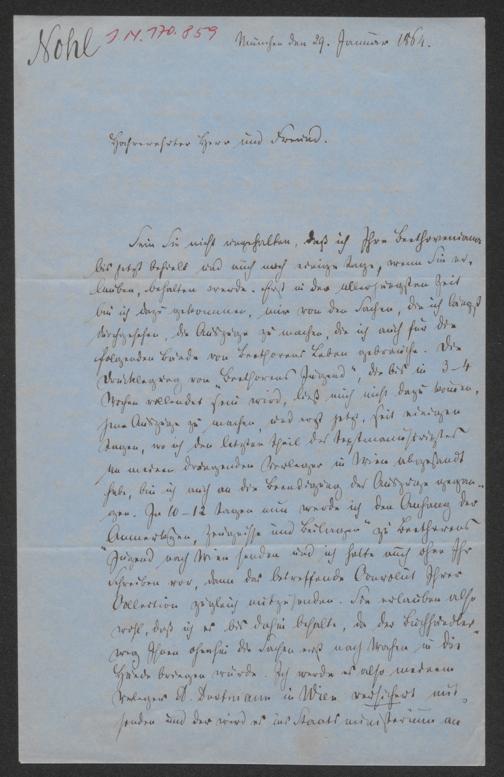 Nohl
I.N. 170.859
München den 29. Januar 1864.
Hochverehrter Herr und Freund.
Sein Sie nicht ungehalten, daß ich Ihre Beethoveniana
bis jetzt behielt und auch noch einige Tage, wenn Sie er-
lauben, behalten werde. Erst in der allerjüngsten Zeit
bin ich dazu gekommen, nur von den Sachen, die ich längst
durchgesehen, die Auszüge zu machen, die ich auch für die
folgenden Bände von Beethovens Leben gebrauche. Die
Drucklegung von "Beethovens Jugend", die bis in 3-4
Wochen vollendet sein wird, ließ mich nicht dazu kommen,
jene Auszüge zu machen, und erst jetzt, seit einigen
Tagen, wo ich den letzten Theil des Textmanuscriptes
an meinen drängenden Verleger in Wien abgesandt
habe, bin ich auch an die Beendigung der Auszüge gegan-
gen. In 10-12 Tagen nun werde ich den Anfang der
"Anmerkungen, Zeugnisse und Beilagen" zu Beethovens
Jugend nach Wien senden und ich hatte auch ohne Ihr
Schreiben vor, dann das betreffende Convolut Ihrer
Collection zugleich mitzusenden. Sie erlauben also
wohl, daß ich es bis dahin behalte, da der Buchhändler
weg Ihnen ohnehin die Sachen erst nach Wochen in die
Hände bringen würde. Ich werde es also meinem
Verleger H. Dortmann in Wien versichert mit-
senden und der wird es ins Staatsministerium an